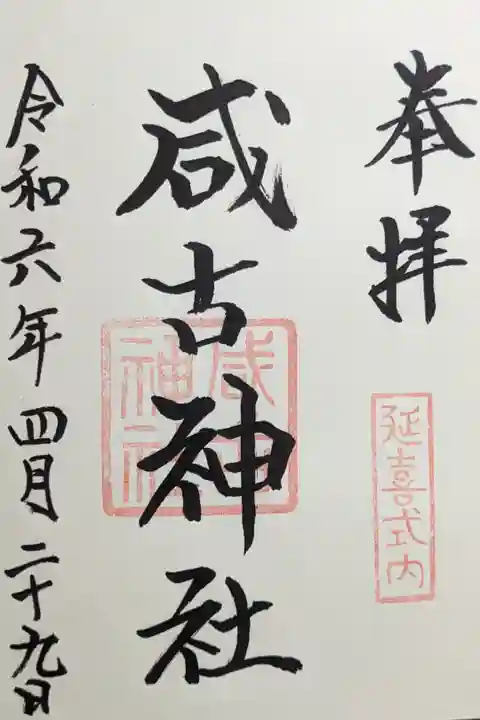 奉拝
延喜式内
咸古神社
咸古
神社
令和六年四月二十九日